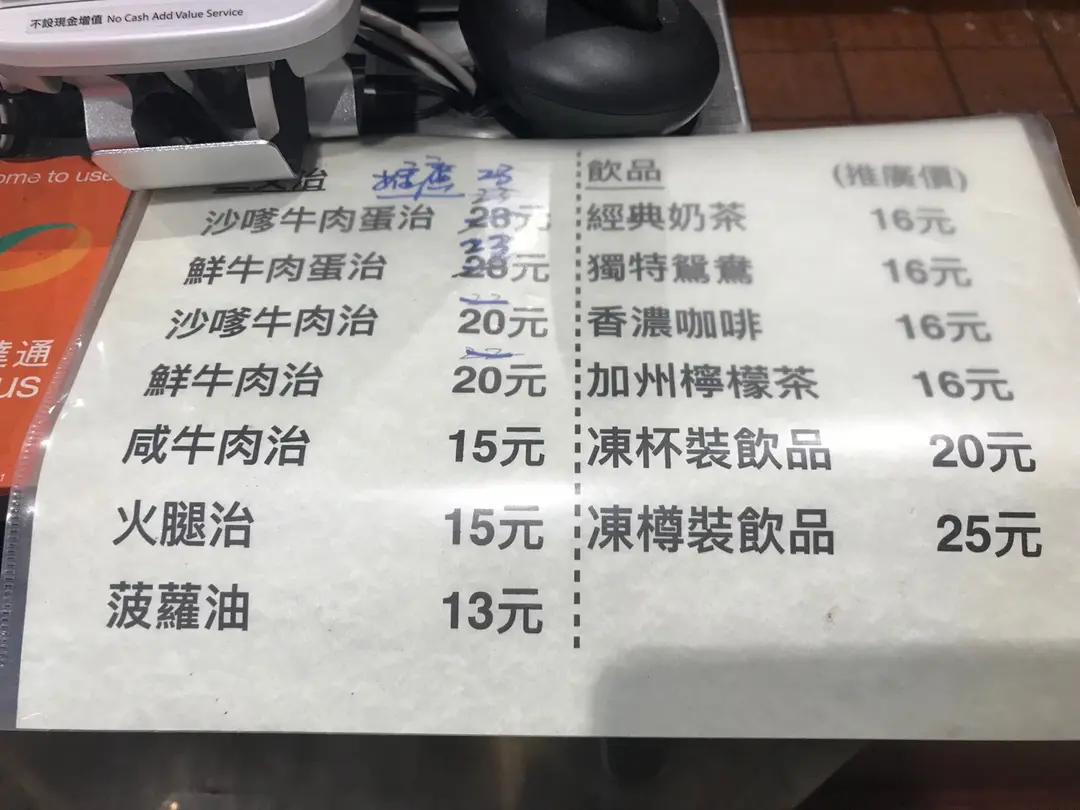 不設現金增值 No Cash Add Value Service
ome to use
達通
us
治 推廣 23
沙嗲牛肉蛋治 23 28元
鮮牛肉蛋治 23 28元
沙嗲牛肉治 20元
鮮牛肉治 20元
咸牛肉治 15元
火腿治 15元
菠蘿油 13元
飲品 (推廣價)
經典奶茶 16元
獨特鴛鴦 16元
香濃咖啡 16元
加州檸檬茶 16元
凍杯裝飲品 20元
凍樽裝飲品 25元